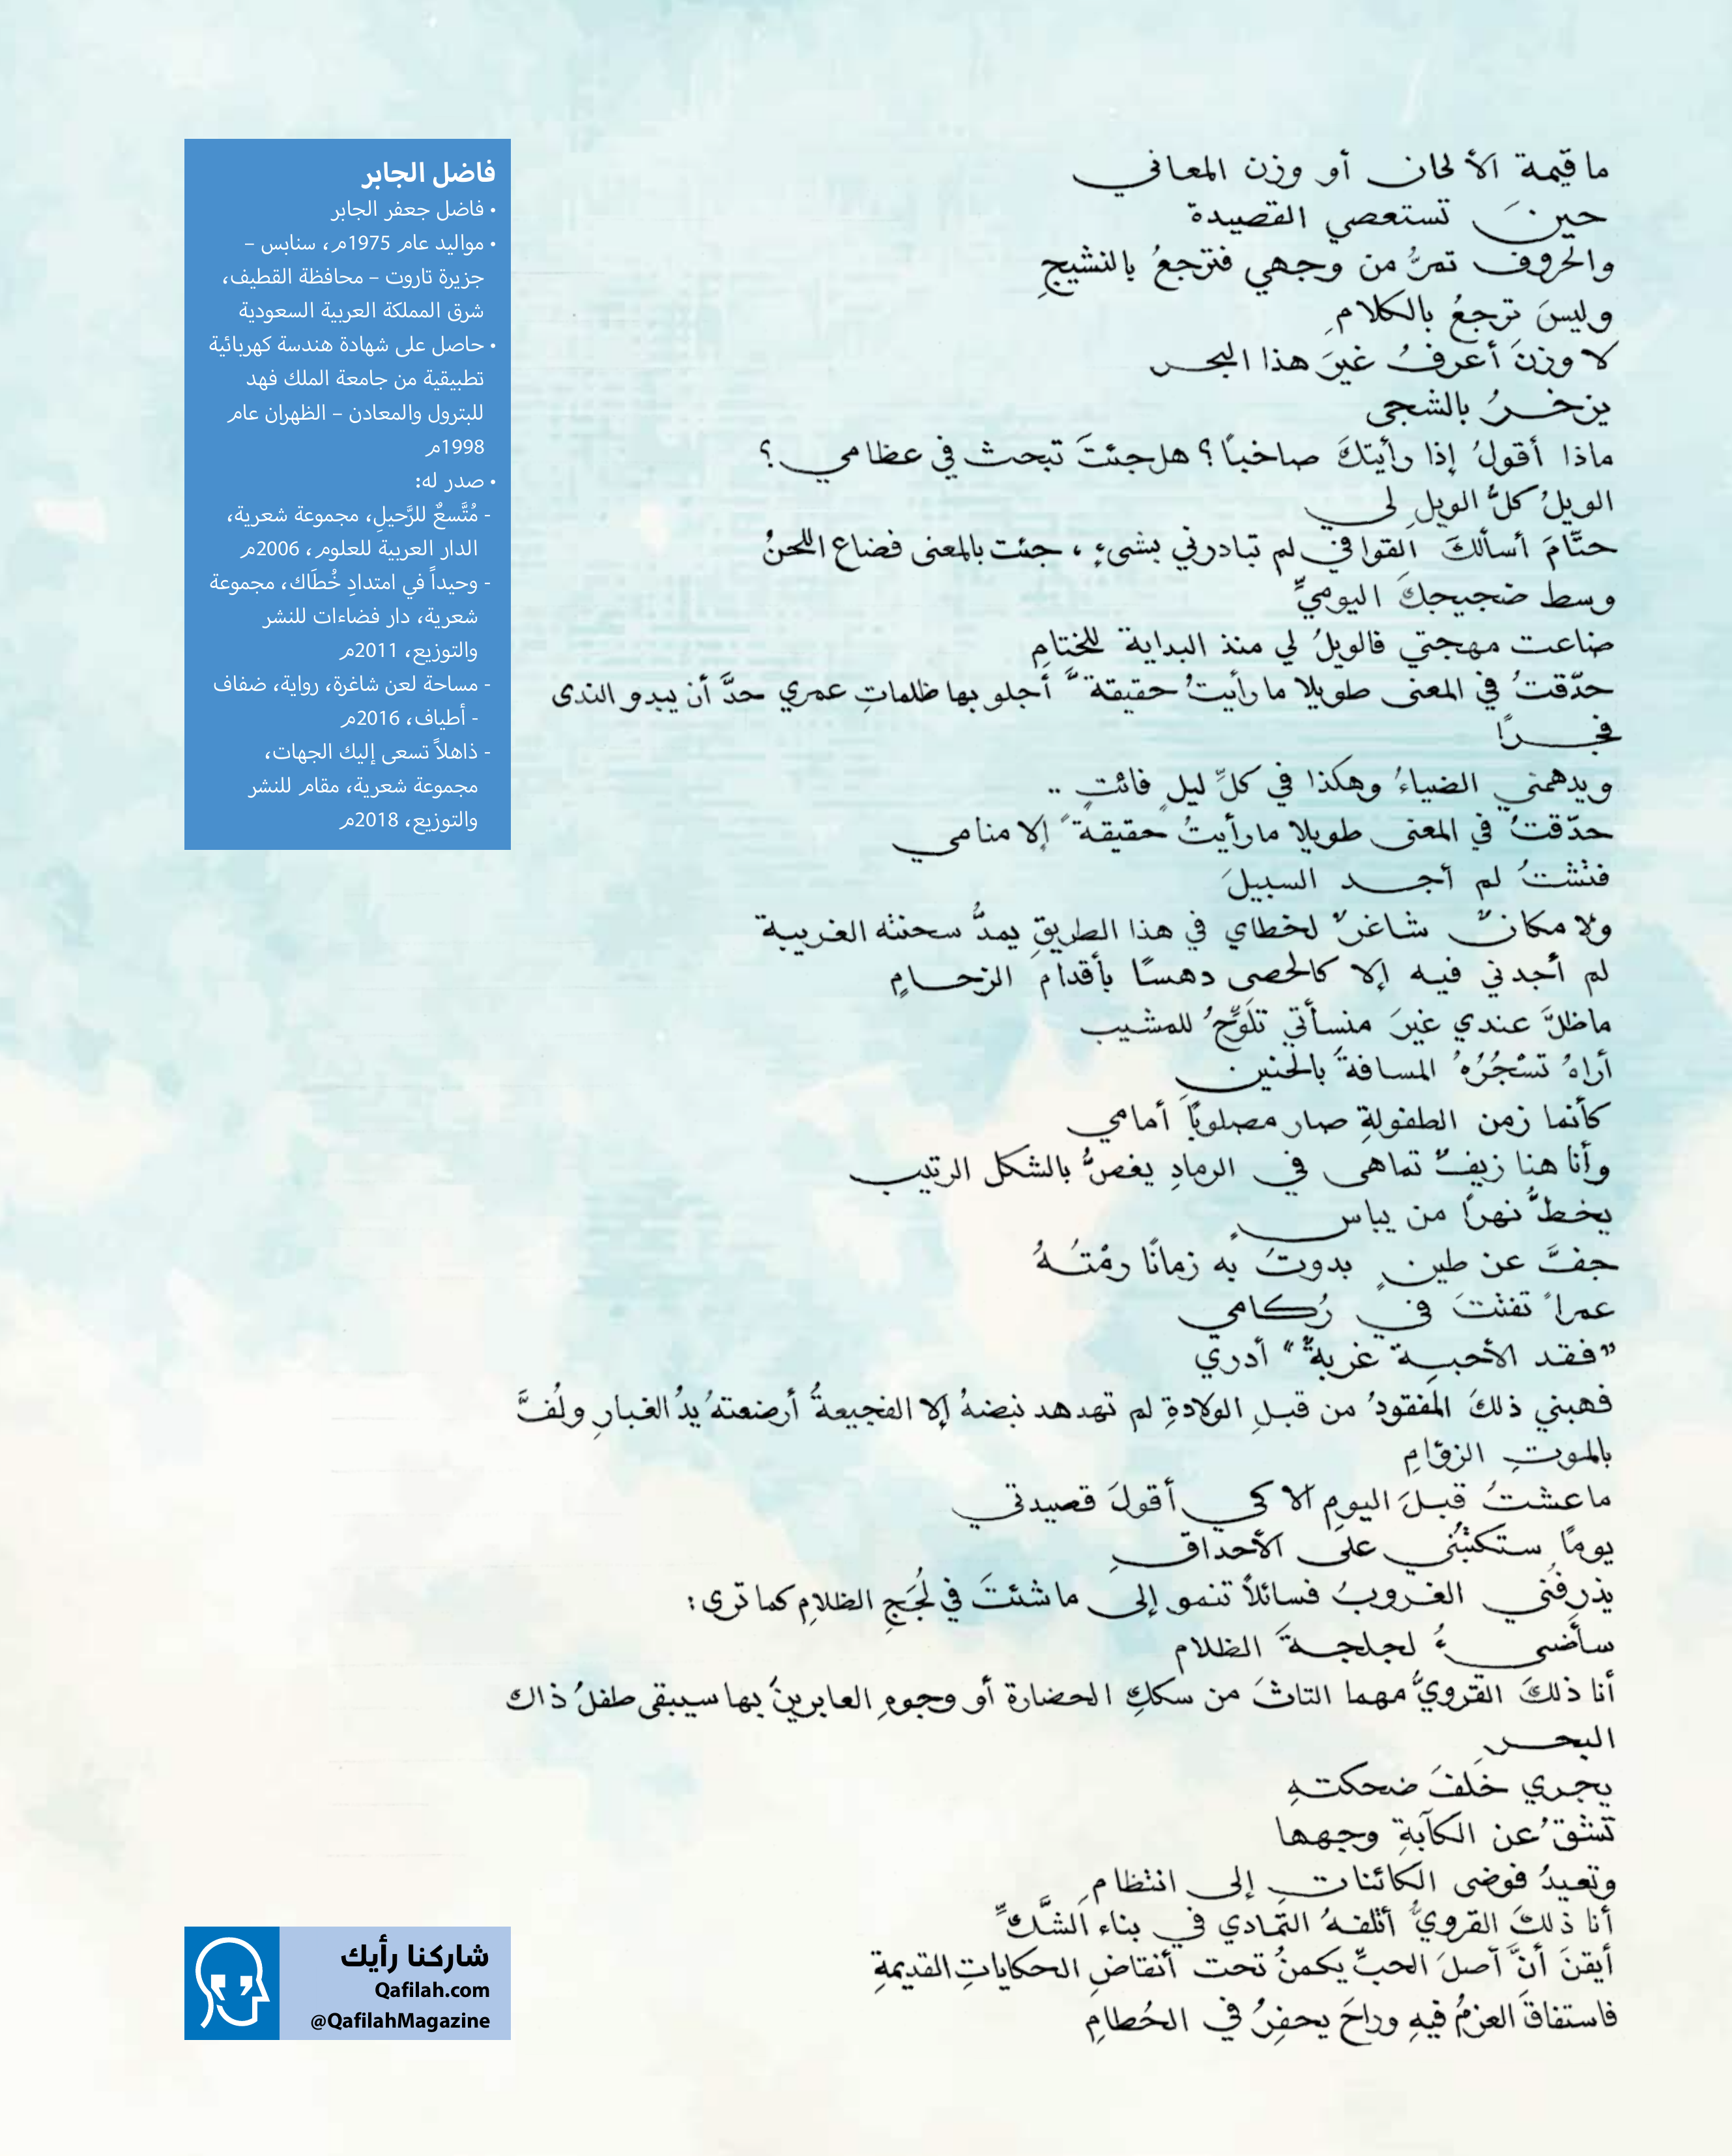 ما قيمة الألحان أو وزن المعاني
حينَ تستعصي القصيدة
والحروف تمرُّ من وجهي فترجعُ بالنشيجِ
وليسَ ترجعُ بالكلامِ
لا وزنَ أعرفُ غيرَ هذا البحرِ
يزخرُ بالشجى
ماذا أقولُ إذا رأيتكَ صاخباً؟ هل جئتَ تبحث في عظامي؟
الويلُ كلُّ الويلِ لي
حتَّامَ أسألكَ القوافيَ لم تبادرني بشيءٍ، جئت بالمعنى فضاع اللحنُ
وسط ضجيجكَ اليوميِّ
ضاعت مهجتي فالويلُ لي منذ البداية للختامِ
حدّقتُ في المعنى طويلا ما رأيتُ حقيقةً أجلو بها ظلماتِ عمري حدَّ أن يبدو الندى
فجرًا
ويدهمني الضياءُ وهكذا في كلِّ ليلٍ فائتٍ ..
حدّقتُ في المعنى طويلا ما رأيتُ حقيقةً إلا منامي
فتشتُ لم أجد السبيلَ
ولا مكانٌ شاغرٌ لخطاي في هذا الطريقِ يمدُّ سحنته الغريبة
لم أجدني فيه إلا كالحصى دهسًا بأقدام الزحامِ
ما ظلَّ عندي غيرَ منسأتي تلَوِّحُ للمشيب
أراهُ تسْجُرُهُ المسافةُ بالحنينِ
كأنما زمن الطفولةِ صار مصلوبًا أمامي
وأنا هنا زيفٌ تماهى في الرمادِ يغصُّ بالشكل الرتيب
يخطُّ نهرًا من يباسٍ
جفَّ عن طينٍ بدوتُ به زمانًا رمْتُهُ
عمراً تفتتَ في رُكامي
"فقد الأحبة غربةٌ" أدري
فهبني ذلكَ المفقودُ من قبلِ الولادةِ لم تهدهد نبضهُ إلا الفجيعةُ أرضعتهُ يدُ الغبارِ ولُفَّ
بالموتِ الزؤامِ
ما عشتُ قبلَ اليومِ الا كي أقولَ قصيدتي
يومًا ستكتبُني على الأحداقِ
يذرفُني الغروبُ فسائلاً تنمو إلى ما شئتَ في لُجَجِ الظلامِ كما ترى:
سأضيءُ لجلجةَ الظلام
أنا ذلكَ القرويُّ مهما التاثَ من سككِ الحضارة أو وجوهِ العابرينَ بها سيبقى طفلُ ذاك
البحرِ
يجري خلفَ ضحكتهِ
تشقُّ عن الكآبةِ وجهها
وتعيدُ فوضى الكائناتِ إلى انتظامِ
أنا ذلكَ القرويُّ أتلفهُ التمادي في بناء الشَّكِّ
أيقنَ أنَّ أصلَ الحبِّ يكمنُ تحت أنقاضِ الحكاياتِ القديمةِ
فاستفاقَ العزمُ فيهِ وراحَ يحفِرُ في الحُطامِ
فاضل الجابر
• فاضل جعفر الجابر
• مواليد عام 1975م، سنابس –
جزيرة تاروت – محافظة القطيف،
شرق المملكة العربية السعودية
• حاصل على شهادة هندسة كهربائية
تطبيقية من جامعة الملك فهد
للبترول والمعادن – الظهران عام
1998م
• صدر له:
- مُتَّسعٌ للرَّحيلِ، مجموعة شعرية،
الدار العربية للعلوم، 2006م
- وحيداً في امتدادِ خُطَاك، مجموعة
شعرية، دار فضاءات للنشر
والتوزيع، 2011م
- مساحة لعن شاغرة، رواية، ضفاف
- أطياف، 2016م
- ذاهلاً تسعى إليك الجهات،
مجموعة شعرية، مقام للنشر
والتوزيع، 2018م
شاركنا رأيك
Qafilah.com
@QafilahMagazine